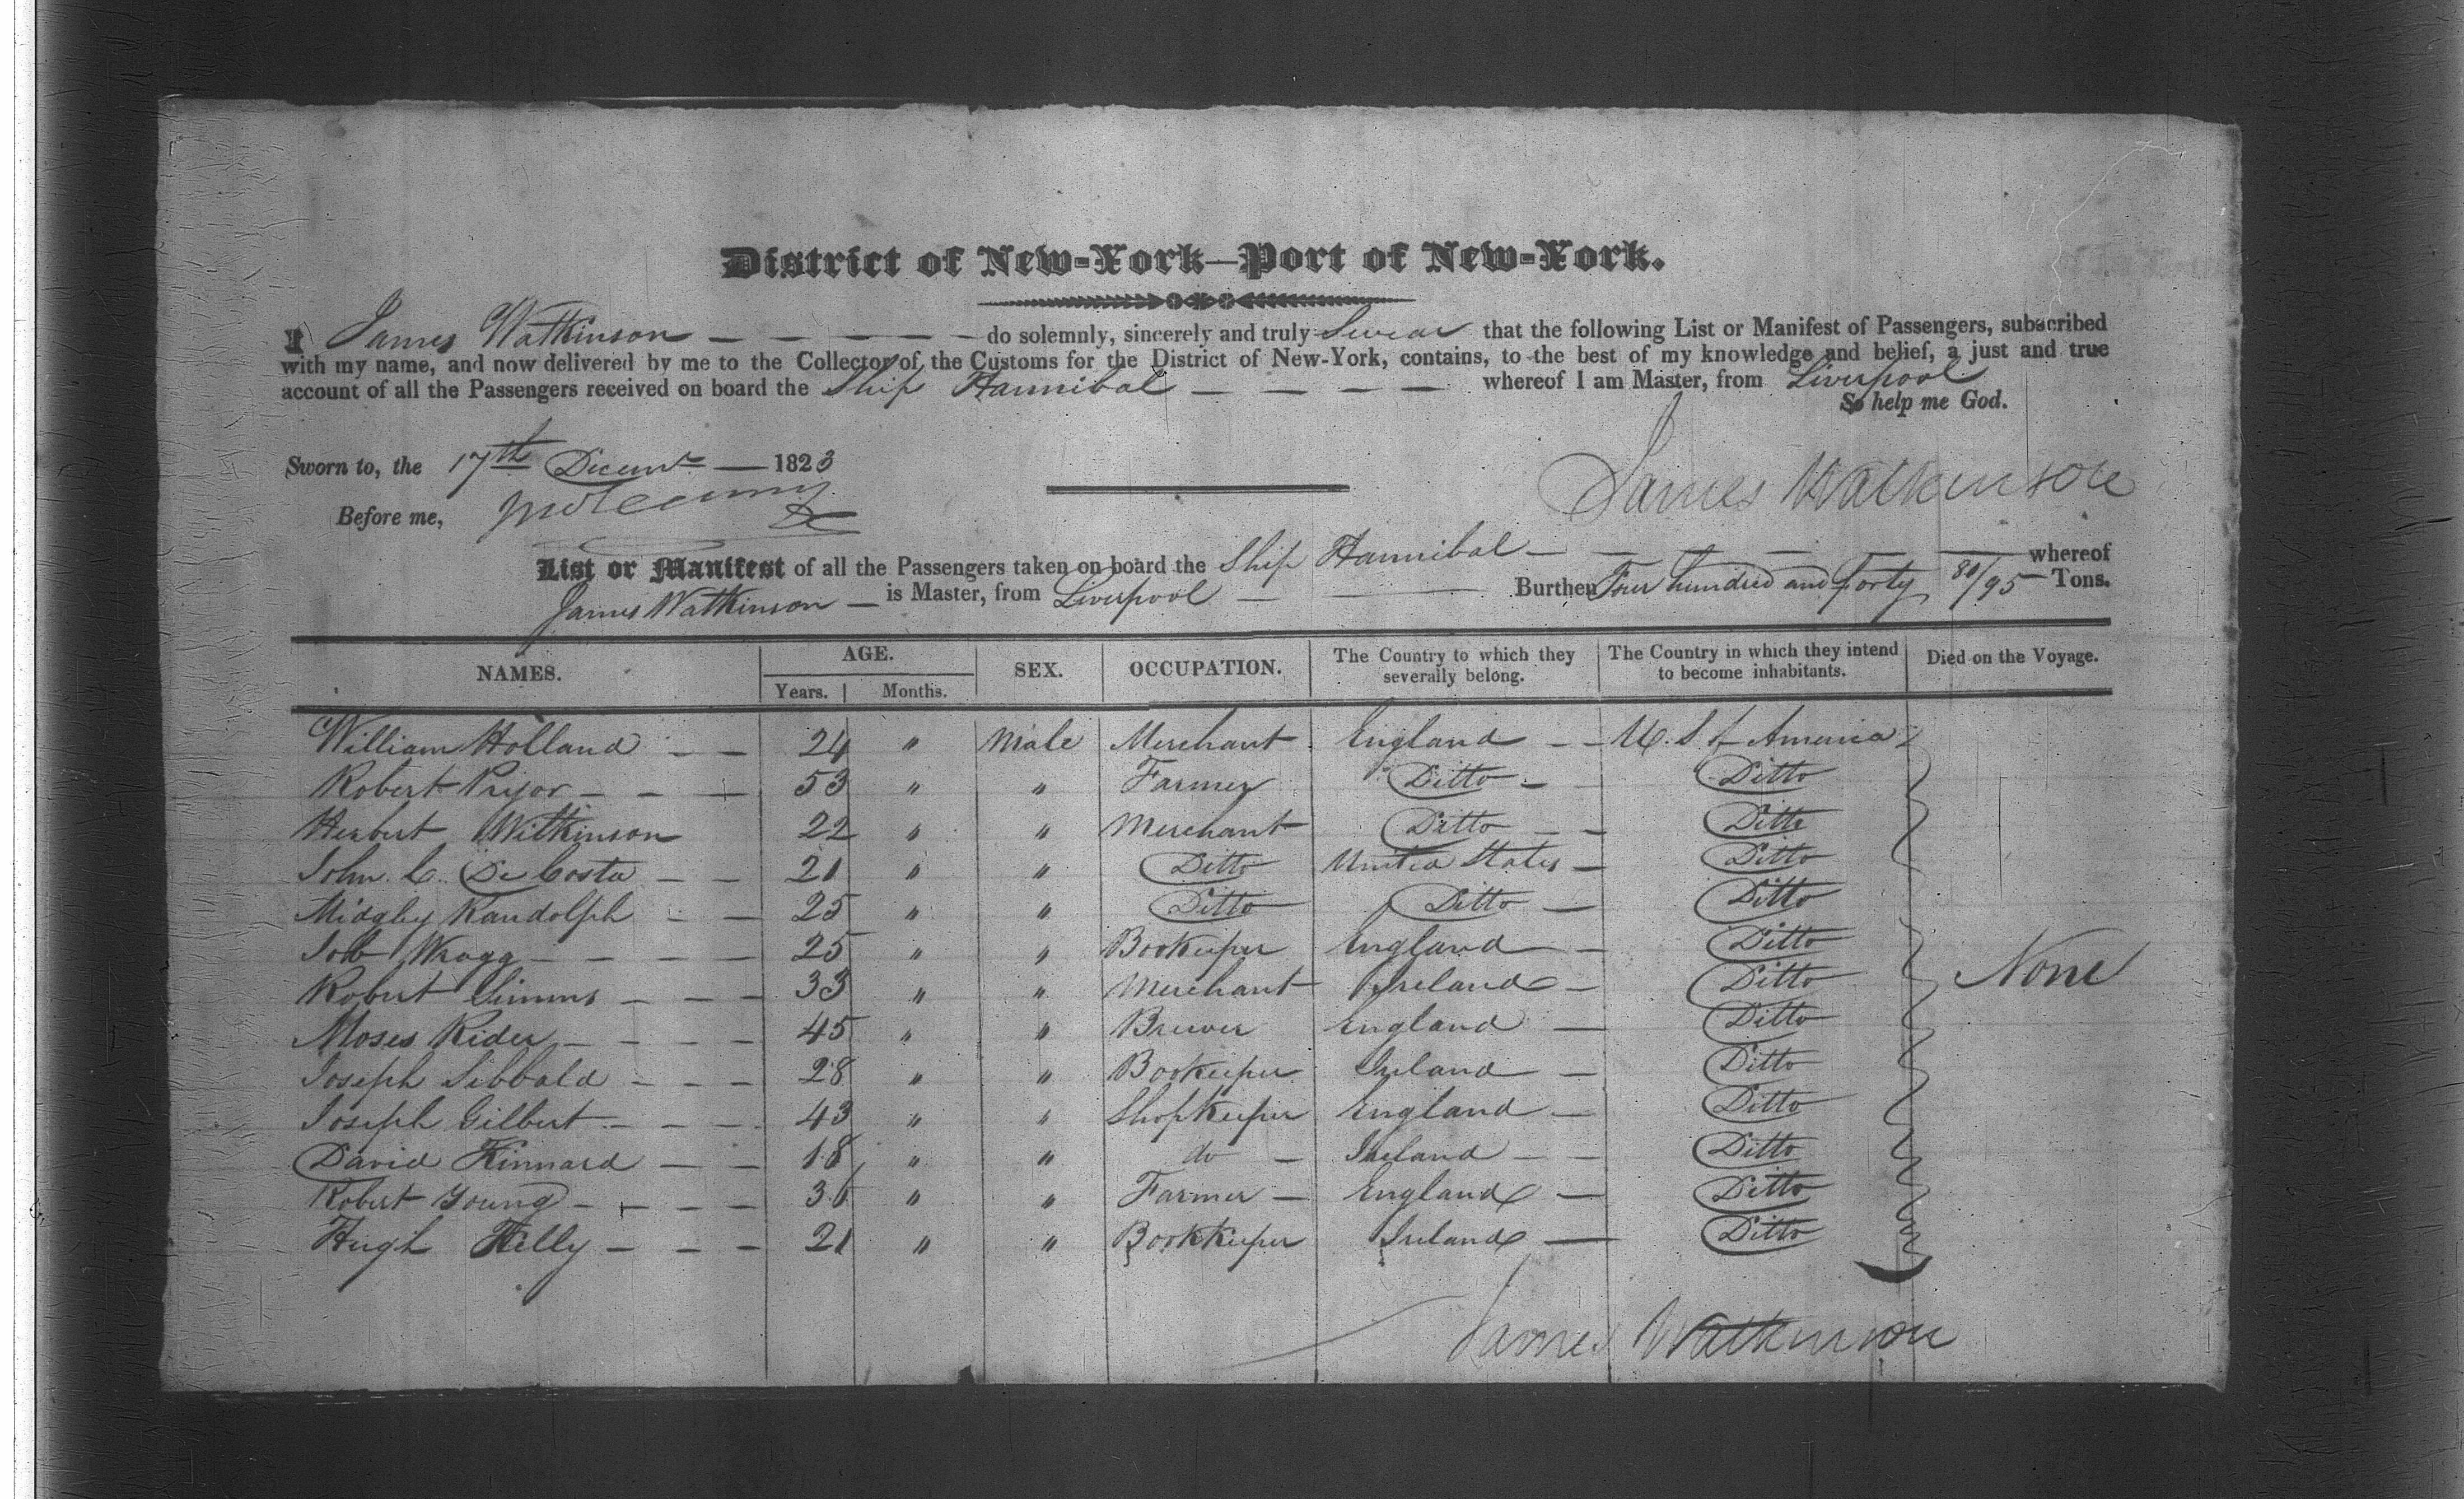 District of New-York—Port of New-York.
I James Watkinson — — — — — do solemnly, sincerely and truly Swear that the following List or Manifest of Passengers, subscribed
with my name, and now delivered by me to the Collector of the Customs for the District of New-York, contains, to the best of my knowledge and belief, a just and true
account of all the Passengers received on board the Ship Hannibal — — — — whereof I am Master, from Liverpool
So help me God.
Sworn to, the 17th Decemr — 1823
James Watkinson
Before me,
List or Manifest of all the Passengers taken on board the Ship Hannibal — — — — — whereof
James Watkinson — is Master, from Liverpool — — Burthen Four hundred and forty 80/95 Tons.
NAMES. AGE. SEX. OCCUPATION. The Country to which they severally belong. The Country in which they intend to become inhabitants. Died on the Voyage.
Years. Months.
William Holland — — 24 " Male Merchant England — — U. S. of America
Robert Pryor — — — 53 " " Farmer Ditto — Ditto
Herbert Wilkinson 22 " " Merchant Ditto — — Ditto
John. C. De Costa — — 21 " " Ditto United States — Ditto
Midgley Randolph — — 25 " " Ditto Ditto — Ditto
Job Wragg — — — — 25 " " Bookeeper England — Ditto
Robert Simms — — — 33 " " Merchant Ireland — Ditto None
Moses Rider — — — — 45 " " Brewer England — Ditto
Joseph Sibbald — — — 28 " " Bookeeper Ireland — Ditto
Joseph Gilbert — — — 43 " " Shopkeeper England — Ditto
David Kinnard — — 18 " " do — Ireland — — Ditto
Robert Young — — — — 36 " " Farmer — England — Ditto
Hugh Kelly — — — 21 " " Bookkeeper Ireland — Ditto
James Watkinson